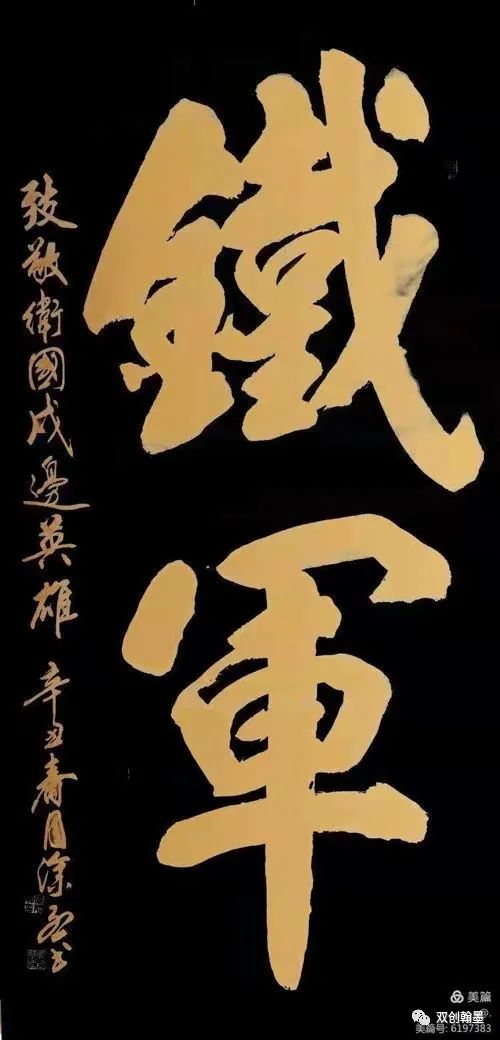 鐵軍
致敬衛國戍邊英雄 辛丑春月涂
美篇
@.
双创翰墨
美篇号: 6197383